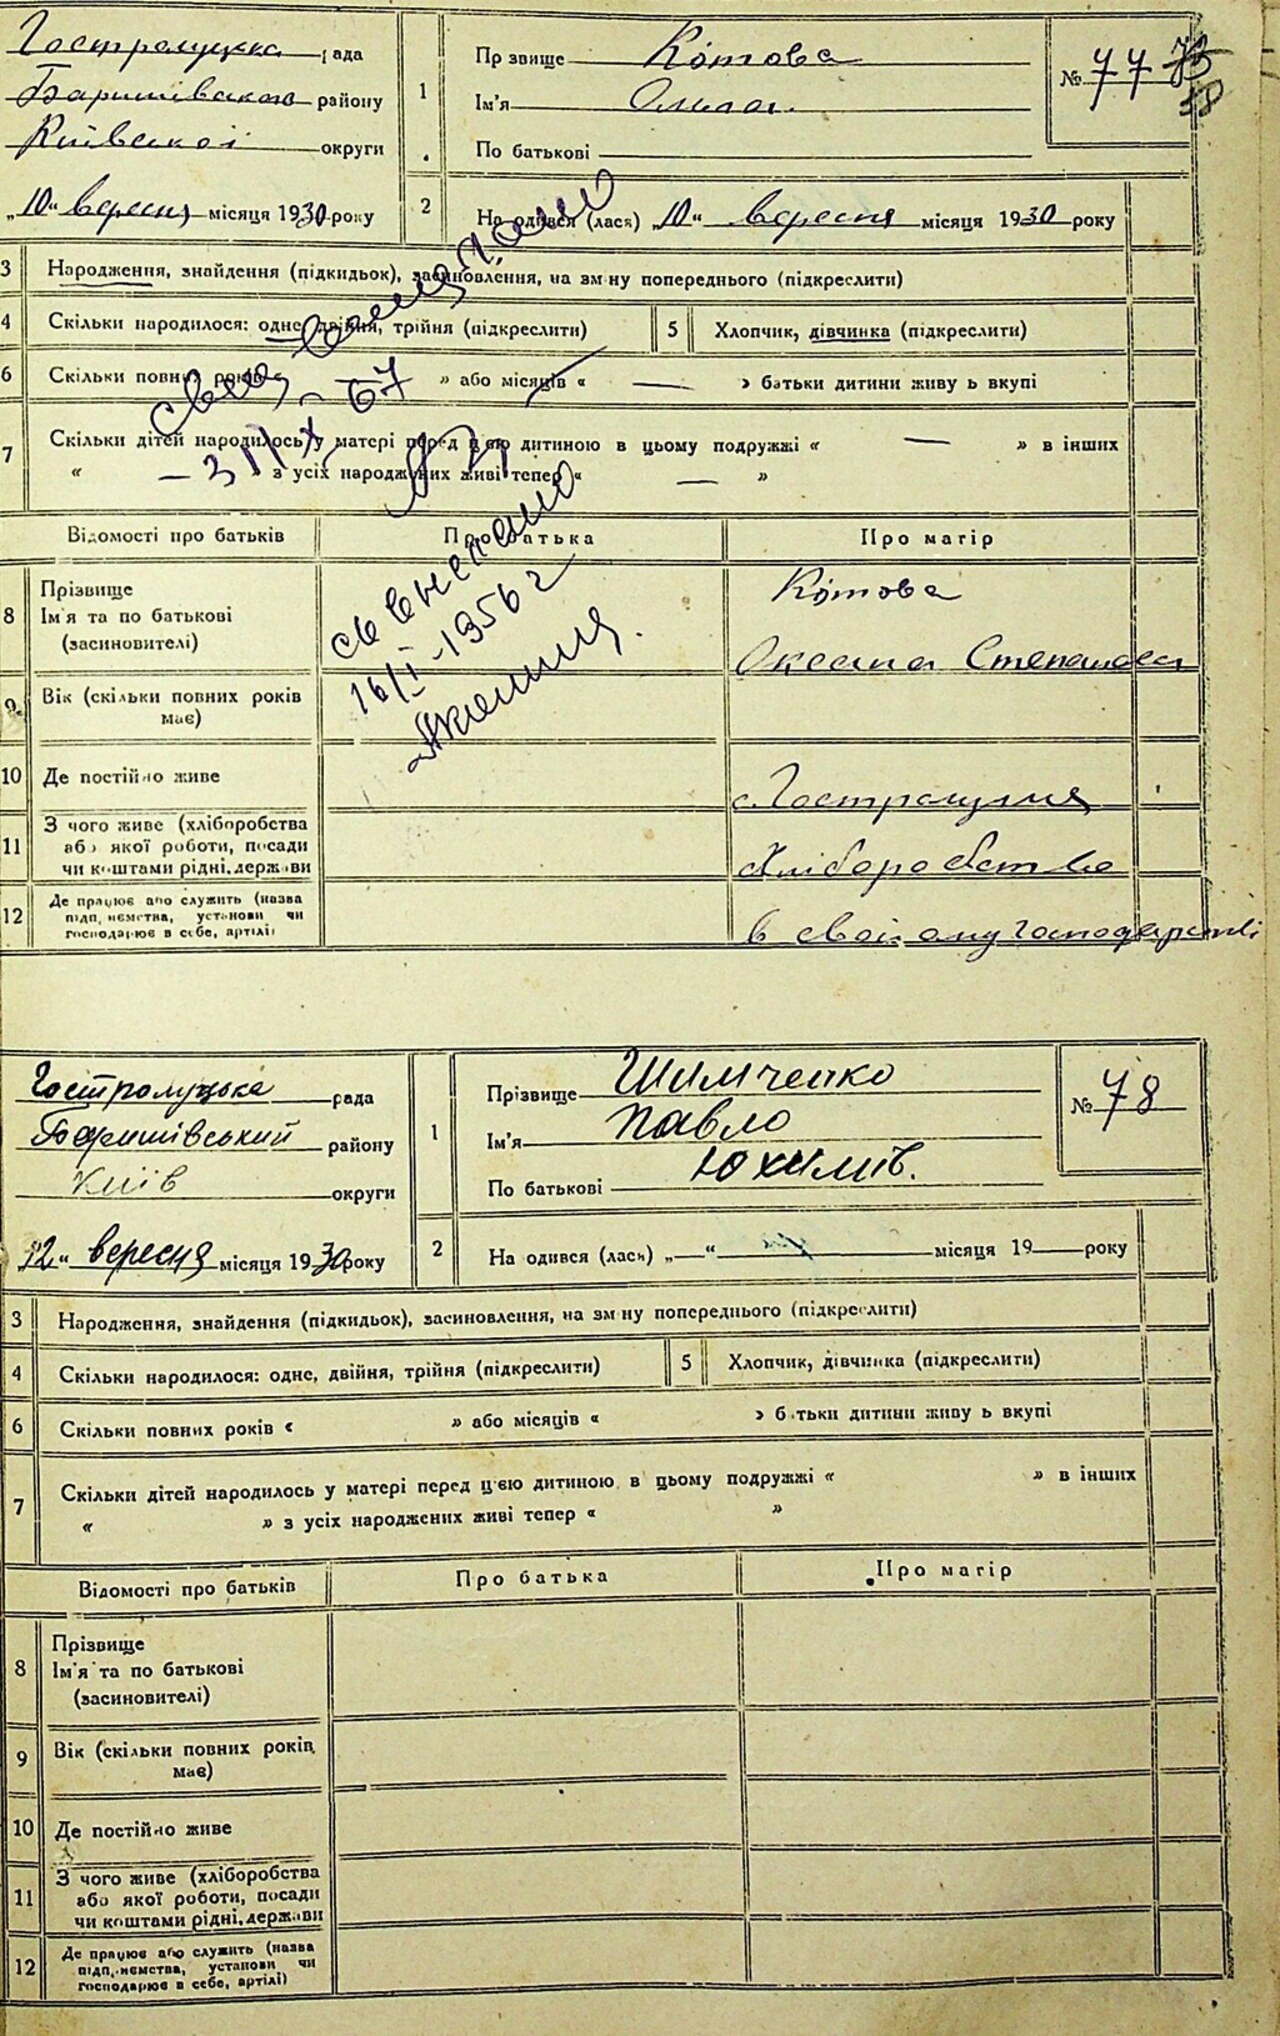 Гостролуцька рада
Баришівського району
Київської округи
„10“ вересня місяця 1930 року
1
Прізвище Котова
Ім'я
По батькові
№ 77
2
Народився (лася) „10“ вересня місяця 1930 року
3 Народження, знайдення (підкидьок), засиновлення, на зміну попереднього (підкреслити)
4 Скільки народилося: одне, двійня, трійня (підкреслити)
5 Хлопчик, дівчинка (підкреслити)
6 Скільки повних років « » або місяців « — » батьки дитини живуть вкупі
7 Скільки дітей народилось у матері перед цією дитиною в цьому подружжі « — » в інших
« » з усіх народжених живі тепер « — »
Відомості про батьків
Про батька
Про матір
8 Прізвище
Ім'я та по батькові
(засиновителі)
Котова
Оксана Степановна
9 Вік (скільки повних років
має)
10 Де постійно живе
с. Гостролуччя
11 З чого живе (хліборобства
або якої роботи, посади
чи коштами рідні, держави
Хліборобство
12 Де працює або служить (назва
підприємства, установи чи
господарює в себе, артілі)
в своїому господарстві
16/I-1956 г
Гостролуцька рада
Баришівський району
Київ округи
„12“ вересня місяця 1930 року
1
Прізвище Шимченко
Ім'я Павло
По батькові Юхимів.
№ 78
2
Народився (лася) „—“ місяця 19 року
3 Народження, знайдення (підкидьок), засиновлення, на зміну попереднього (підкреслити)
4 Скільки народилося: одне, двійня, трійня (підкреслити)
5 Хлопчик, дівчинка (підкреслити)
6 Скільки повних років « » або місяців « » батьки дитини живуть вкупі
7 Скільки дітей народилось у матері перед цією дитиною в цьому подружжі « » в інших
« » з усіх народжених живі тепер « »
Відомості про батьків
Про батька
Про матір
8 Прізвище
Ім'я та по батькові
(засиновителі)
9 Вік (скільки повних років
має)
10 Де постійно живе
11 З чого живе (хліборобства
або якої роботи, посади
чи коштами рідні, держави
12 Де працює або служить (назва
підприємства, установи чи
господарює в себе, артілі)